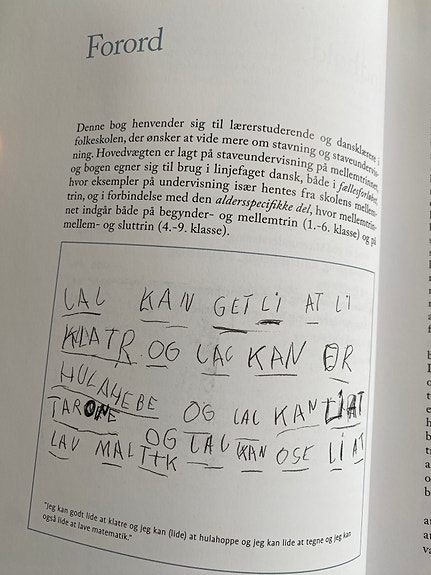 Forord
Denne bog henvender sig til lærerstuderende og dansklærere i
folkeskolen, der ønsker at vide mere om stavning og staveundervis-
ning. Hovedvægten er lagt på staveundervisning på mellemtrinnet,
og bogen egner sig til brug i linjefaget dansk, både i fællesforløbet,
hvor eksempler på undervisning især hentes fra skolens mellem-
trin, og i forbindelse med den aldersspecifikke del, hvor mellemtrin-
net indgår både på begynder- og mellemtrin (1.-6. klasse) og på
mellem- og sluttrin (4.-9. klasse).
LAL KAN GET LI AT LI
KLATR OG LAL KAN ØR
HULAHEBE
TARONE OG LAL KAN LI AT
LAV MALTTK OG LAL KAN OSE LI AT
"Jeg kan godt lide at klatre og jeg kan (lide) at hulahoppe og jeg kan lide at tegne og jeg kan
også lide at lave matematik."